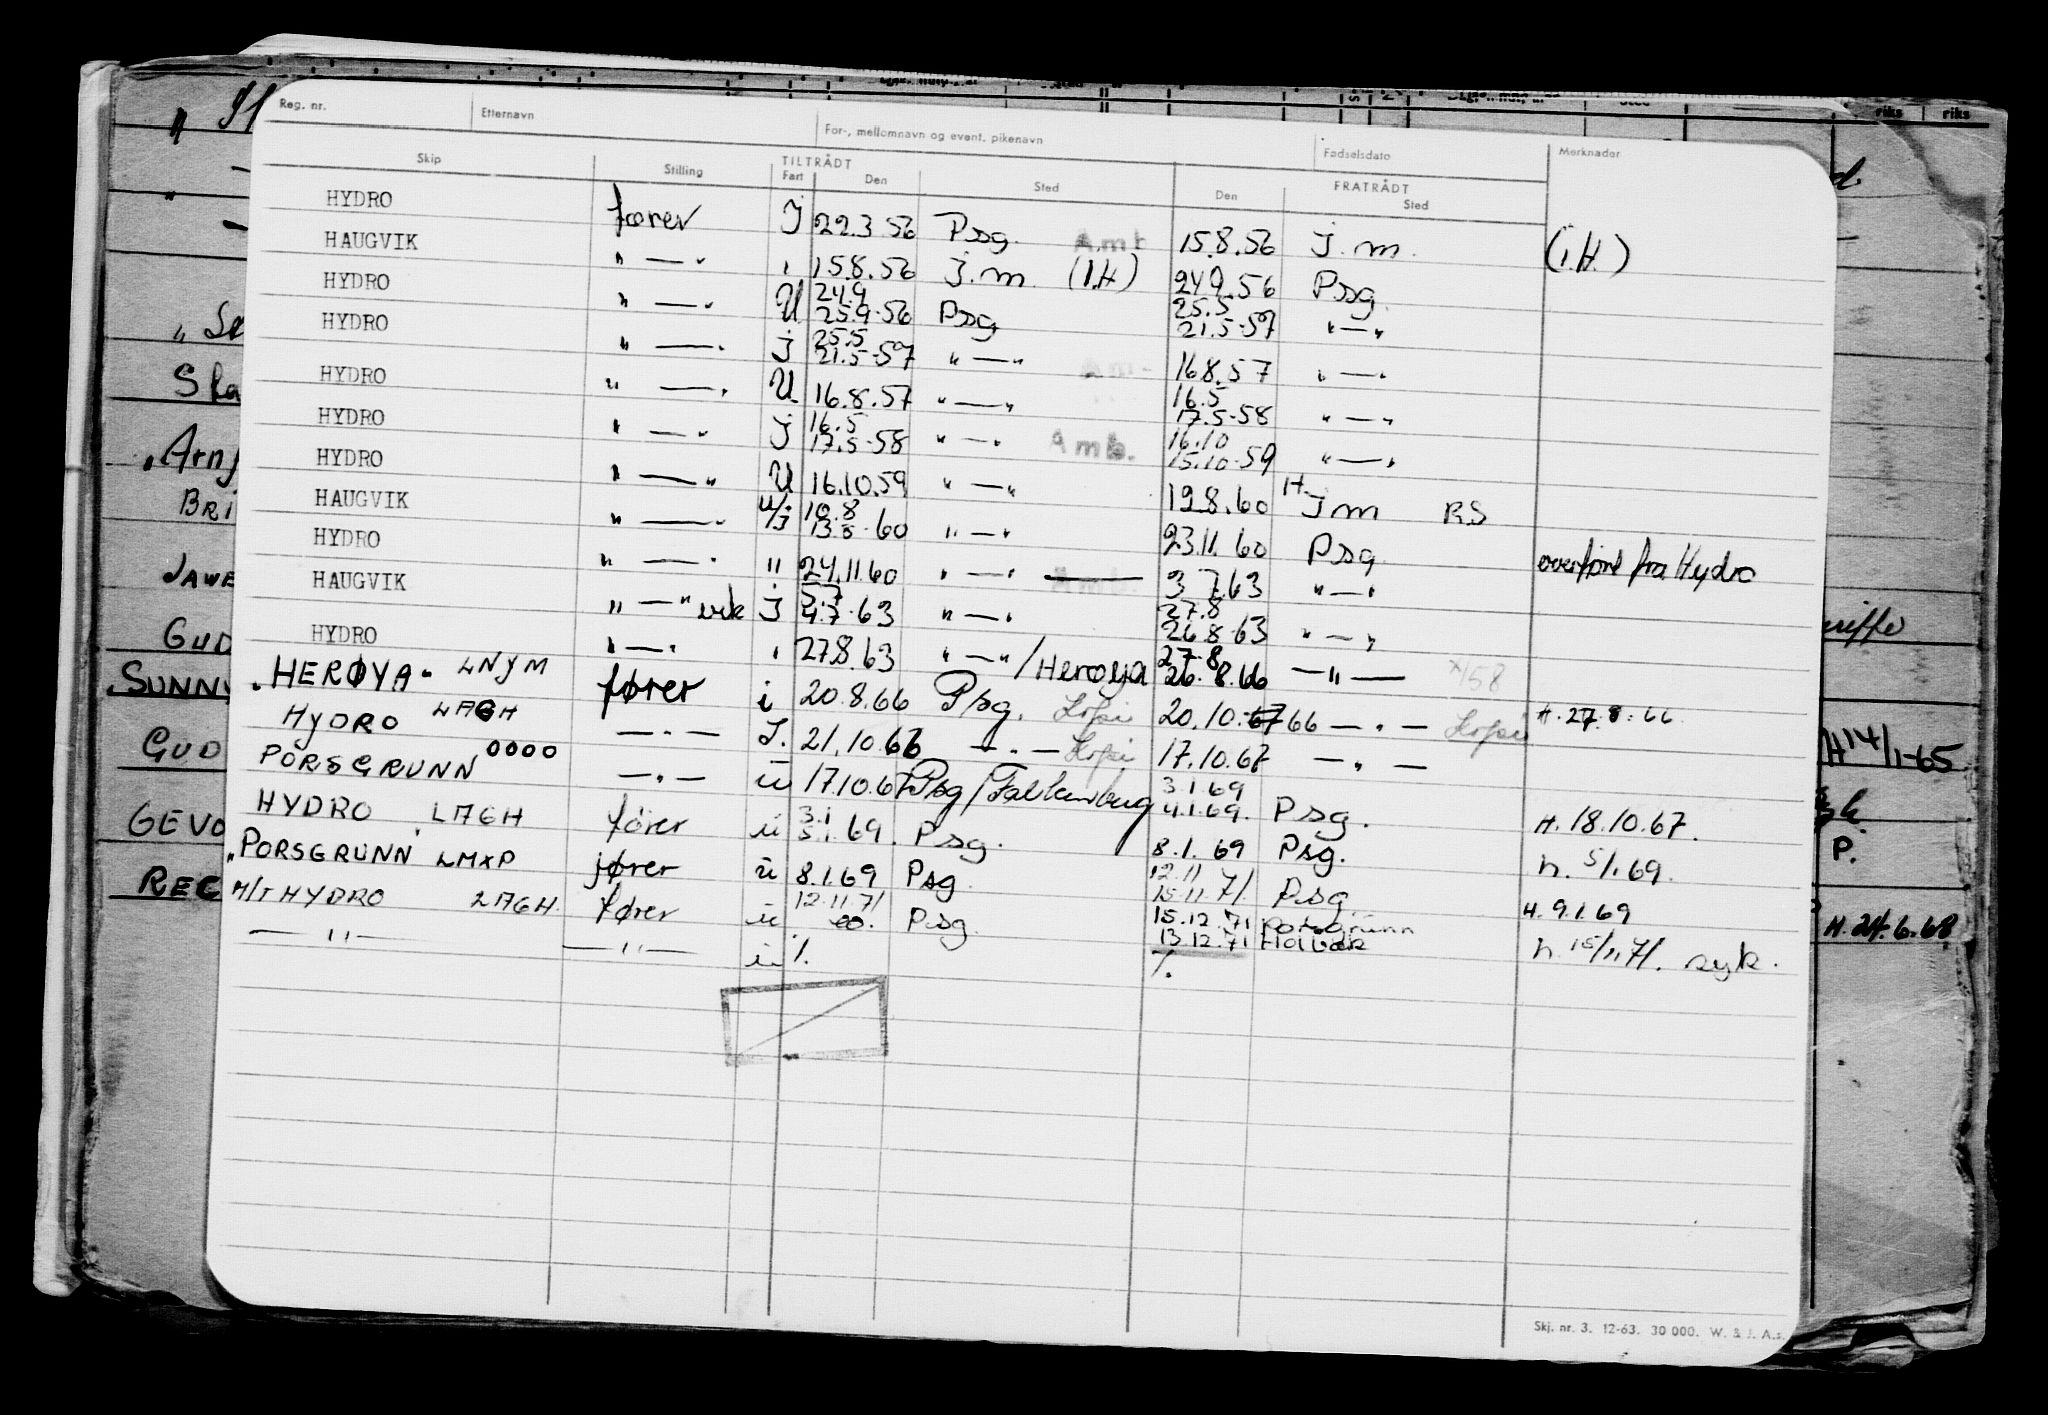 Reg. nr. Etternavn For-, mellomnavn og event. pikenavn Fødselsdato Merknader
Skip Stilling TILTRÅDT FRATRÅDT
Fart Den Sted Den Sted
HYDRO fører J 22.3.56 Psg. Amb 15.8.56 J.m. (i.H.)
HAUGVIK " — " " 15.8.56 J.m. (i.H) 24.9.56 Psg.
HYDRO " — " U 24.9 25.9.56 Psg 25.5 21.5-57 " — "
HYDRO " — " j 25.5 21.5-57 " — " Am 16.8.57 " — "
HYDRO " — " U 16.8.57 " — " 16.5 17.5-58 " — "
HYDRO " — " j 16.5 17.5-58 " — " Amb. 16.10 15.10-59 " — "
HYDRO " — " U 16.10.59 " — " 12.8.60 H. Jm RS
HAUGVIK " — " U/J 10.8 13.8-60 " — " 23.11.60 Psg. overført fra Hydro
HYDRO " — " " 24.11.60 " — " Amb. 3.7.63 " — "
HAUGVIK " — " vik J 5.7 4.7-63 " — " 27.8 26.8-63 " — "
HYDRO " — " " 27.8.63 " — " / Herøya 27.8 26.8.66 — " — x/58
"HERØYA" LNJM fører i 20.8.66 Psg. 20.10.67 66 — " — H. 27.8.66
HYDRO LAGH — " — J. 21.10.66 — " — 17.10.67 — " —
PORSGRUNN 0000 — " — ü 17.10.67 Psg/Falkenburg 3.1.69 4.1.69. Psg. H. 18.10.67.
HYDRO LAGH fører ü 3.1 5.1.69. Psg. 8.1.69 Psg. h. 5/1.69.
"PORSGRUNN LMXP fører ü 8.1.69 Psg. 12.11 15.11.71. Psg. H. 9.1.69
M/T HYDRO LAGH. fører ü 12.11.71 eo. Psg. 15.12.71 Porsgrunn 13.12.71 Holbæk h. 15/11.71. syk.
— " — — " — ü /. /.
Skj. nr. 3. 12-63. 30 000. W. & J. A.s.
BRI
JAWE
GUD
SUNNY
GUD
GEVO
REC
riks riks
H 14/1-65
P.
H. 24.6.68